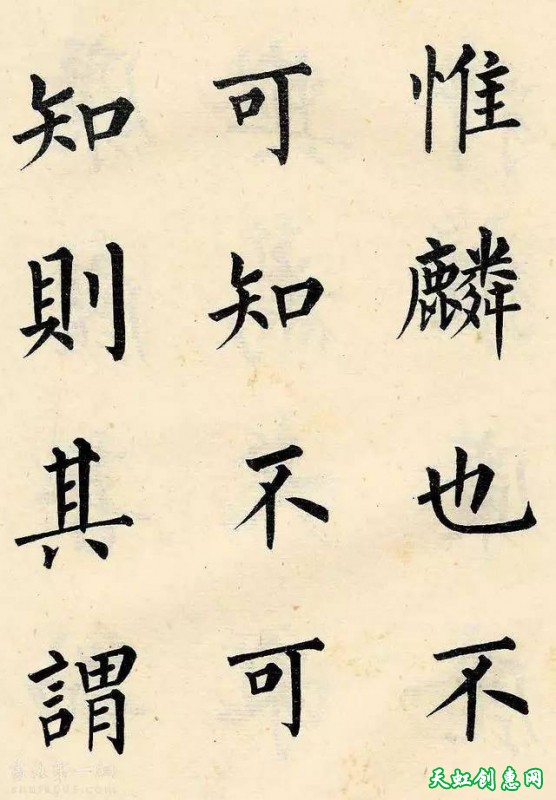 惟麟也不
可知不可
知則其謂
天虹创惠网